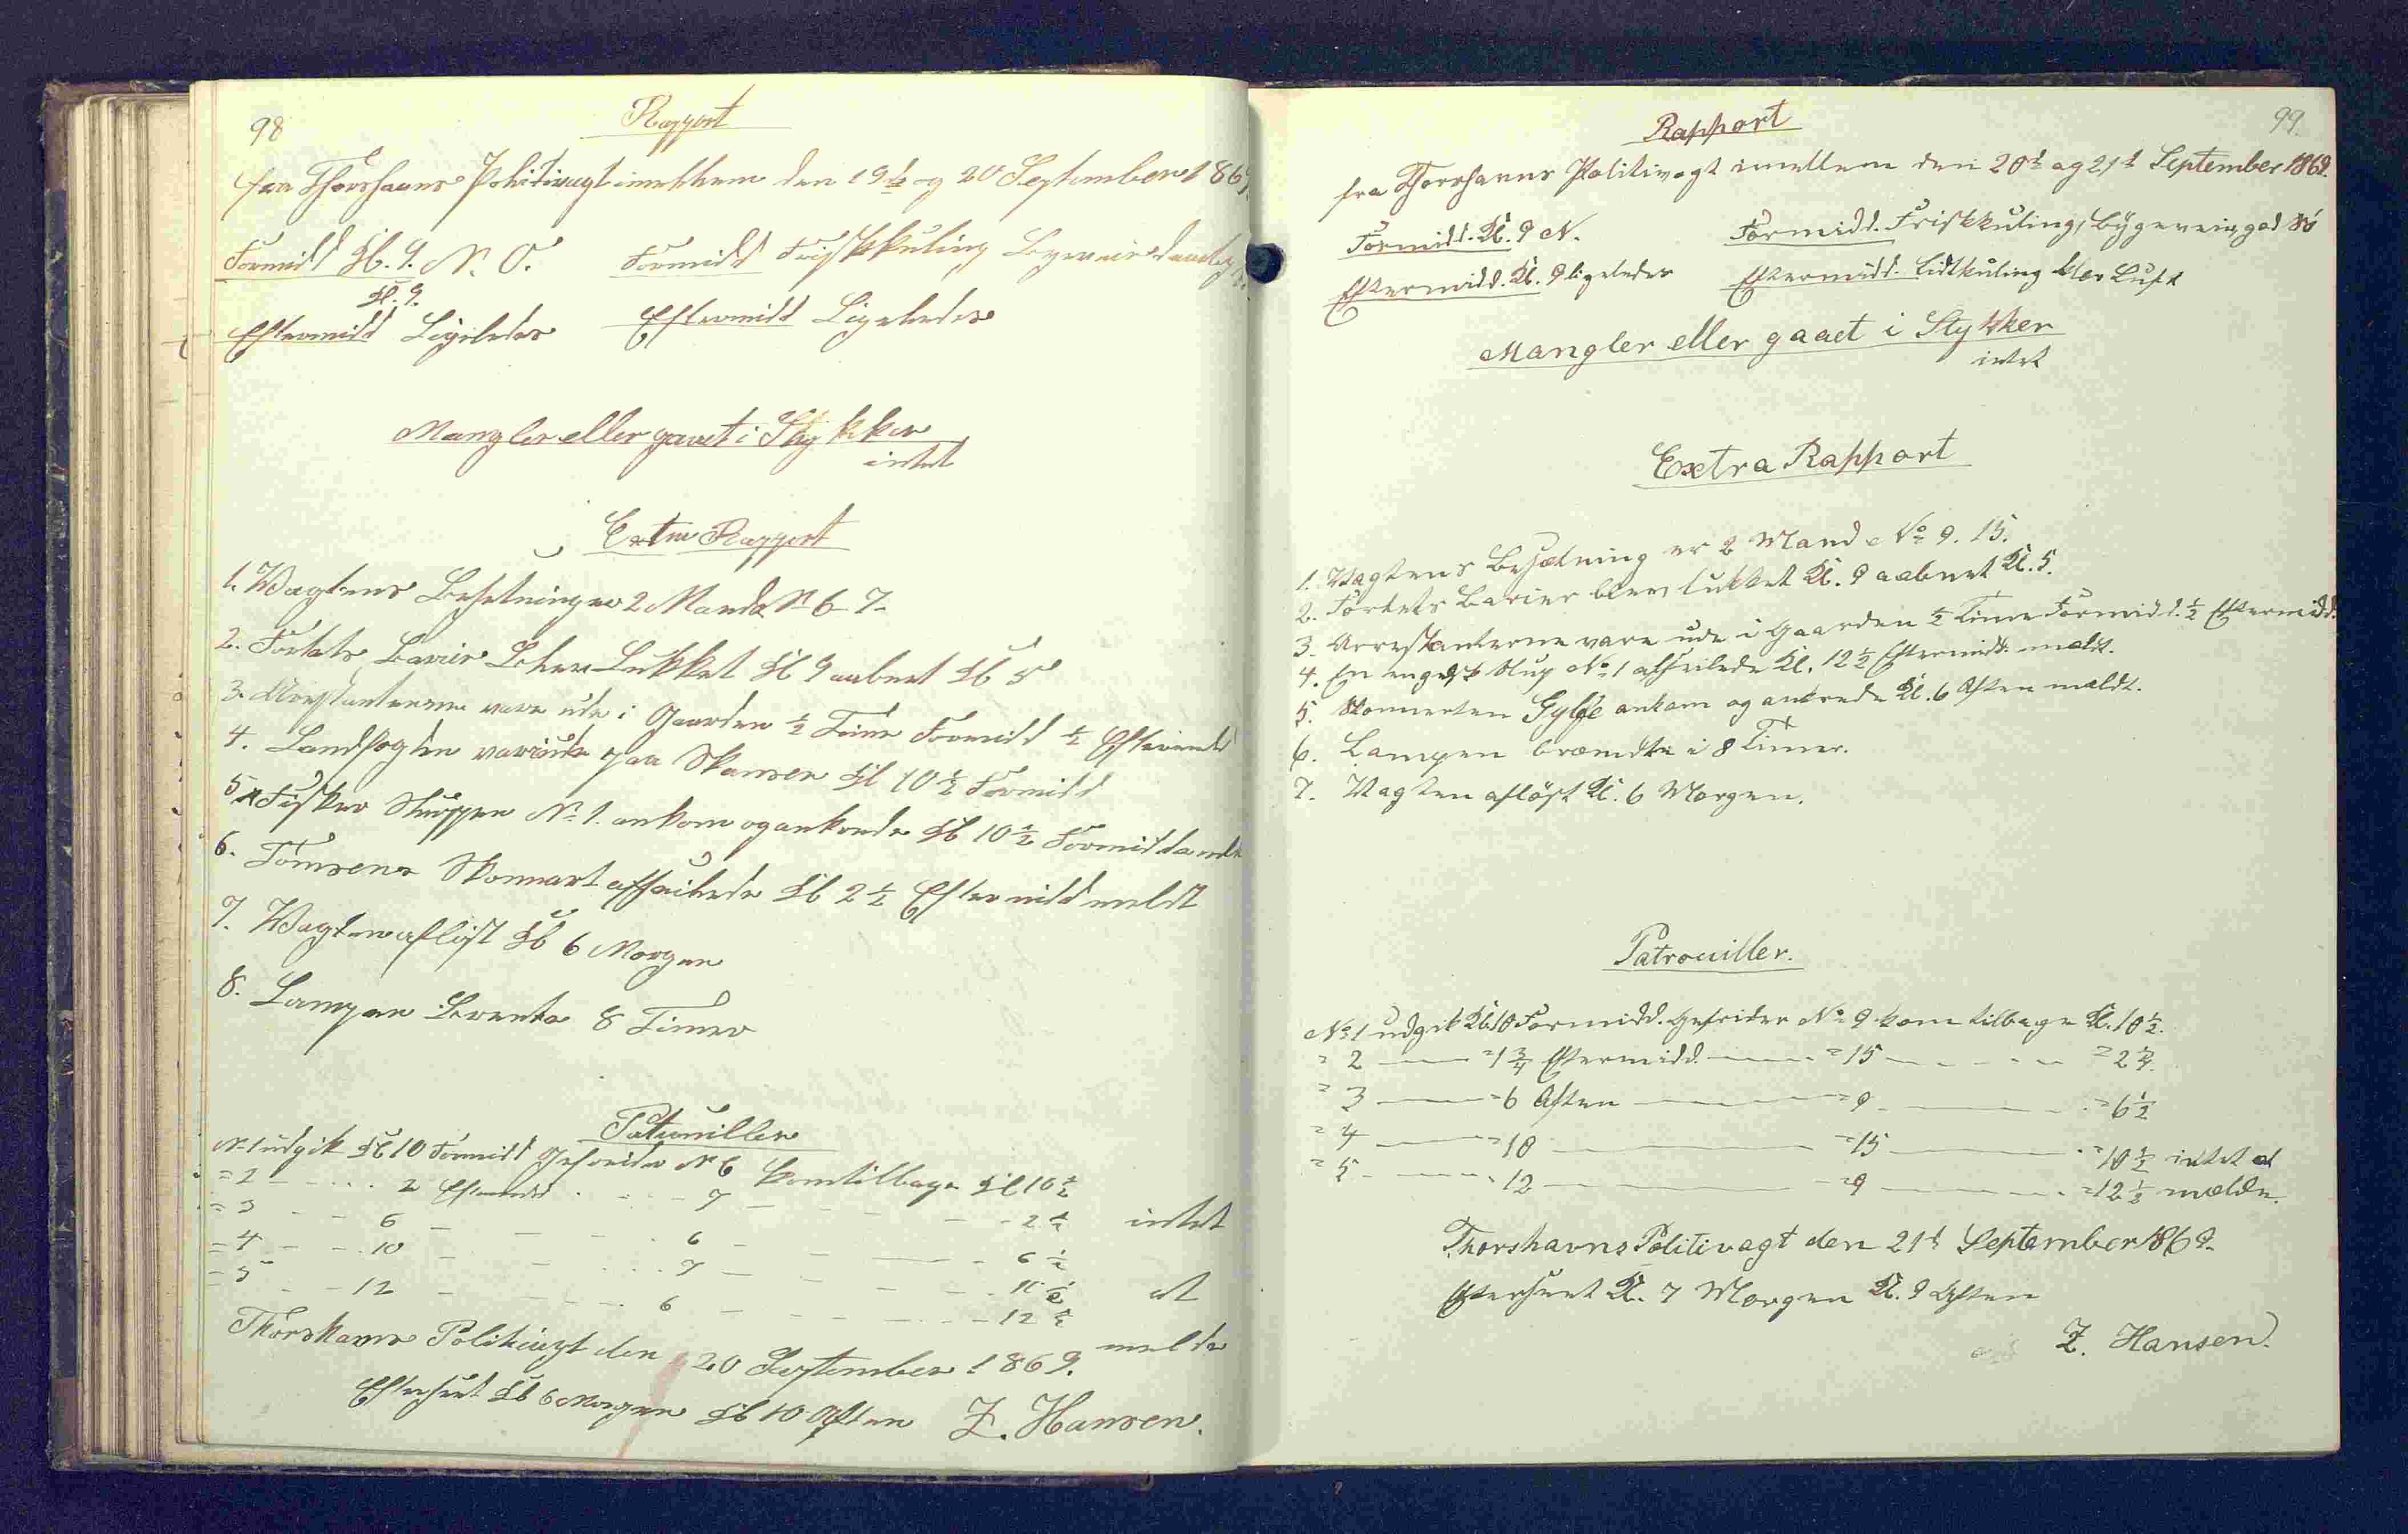 98
Rapport
fra Thorshavns Politivagt imellem den 19de og 20 September 1869.
Formidd Kl. 9. N. O. Formidd Friskkuling Bygeveir
Kl. 9.
Eftermidd Ligeledes Eftermidd Ligeledes
Mangler eller gaaet i Stykker
intet
Extra Rapport
1. Vagtens Besetning er 2 Mand No 6 - 7 -
2. Fortets Barier Blev Lukket Kl 9 aabnet Kl 5
3. Arestanterne vare ude i Gaarden ½ Time Formidd ½ Eftermidd
4. Landfogden var paa Skansen Kl 10½ Formidd
5. Fisker Sluppen No 1. ankom og ankrede Kl 10½ Formidd
6. Tomsens Skonnart afseilede Kl 2½ Eftermidd meldt
7. Vagten afløst Kl 6 Morgen
8. Lampen Brente 8 Timer
Patrouiller
No 1 udgik Kl 10 Formidd Gefreider No 6 kom tilbage Kl 10½
= 2 - - - - 2 Eftermidd - - - 7 - - - - 2½ intet
= 3 - - 6 - - - - 6 - - - - 6½
= 4 - - 10 - - - - 7 - - - - 10½ at
= 5 - - 12 - - - - 6 - - - - 12½
melde
Thorshavns Politivagt den 20 September 1869.
Efterseet Kl 6 Morgen Kl 10 Aften Z. Hansen.
99.
Rapport
fra Thorshavns Politivagt imellem den 20de og 21de September 1869.
Formidd. Kl. 9 N. Formidd. Friskkuling, bygeveir, god Sö
Eftermidd. Kl. 9 ligeledes Eftermidd. Lidtkuling klar Luft
Mangler eller gaaet i Stykker
intet
Extra Rapport
1. Vagtens Besætning er 2 Mand No 9. 15.
2. Fortets Barier blev lukket Kl. 9 aabnet Kl. 5.
3. Arrestanterne vare ude i Gaarden ½ Time Formidd. ½ Eftermidd.
4. En engelsk Slup No 1 afseilede Kl. 12½ Eftermidd. meldt.
5. Skonnerten Gylfe ankom og ankrede Kl. 6 Aften meldt.
6. Lampen brændte i 8 Timer.
7. Vagten aflöst Kl. 6 Morgen.
Patrouiller.
No 1 udgik Kl. 10 Formidd. Gefreider No 9 kom tilbage Kl. 10½.
= 2 — = 1¾ Eftermidd. — = 15 — - - - = 2¼.
= 3 — = 6 Aften — = 9 — - = 6½
= 4 — = 10 — = 15 — - = 10½ intet at
= 5 - — - 12 — = 9 — - = 12½ mælde.
Thorshavns Politivagt den 21de September 1869.
Efterseet Kl. 7 Morgen Kl. 9 Aften
Z. Hansen.